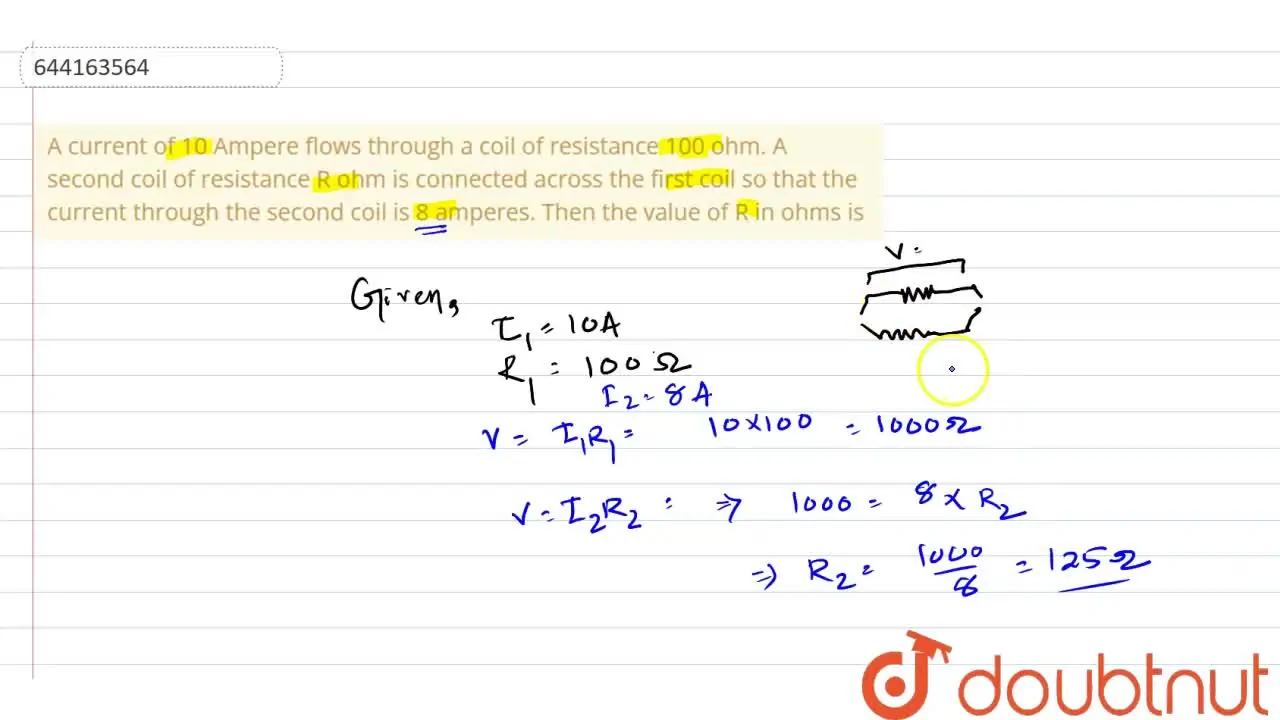 644163564
A current of 10 Ampere flows through a coil of resistance 100 ohm. A
second coil of resistance R ohm is connected across the first coil so that the
current through the second coil is 8 amperes. Then the value of R in ohms is
V =
Given,
I₁ = 10A
R₁ = 100 Ω
I₂ = 8 A
V = I₁R₁ = 10×100 = 1000Ω
V = I₂R₂ = ⇒ 1000 = 8 × R₂
⇒ R₂ = 1000/8 = 125Ω
doubtnut